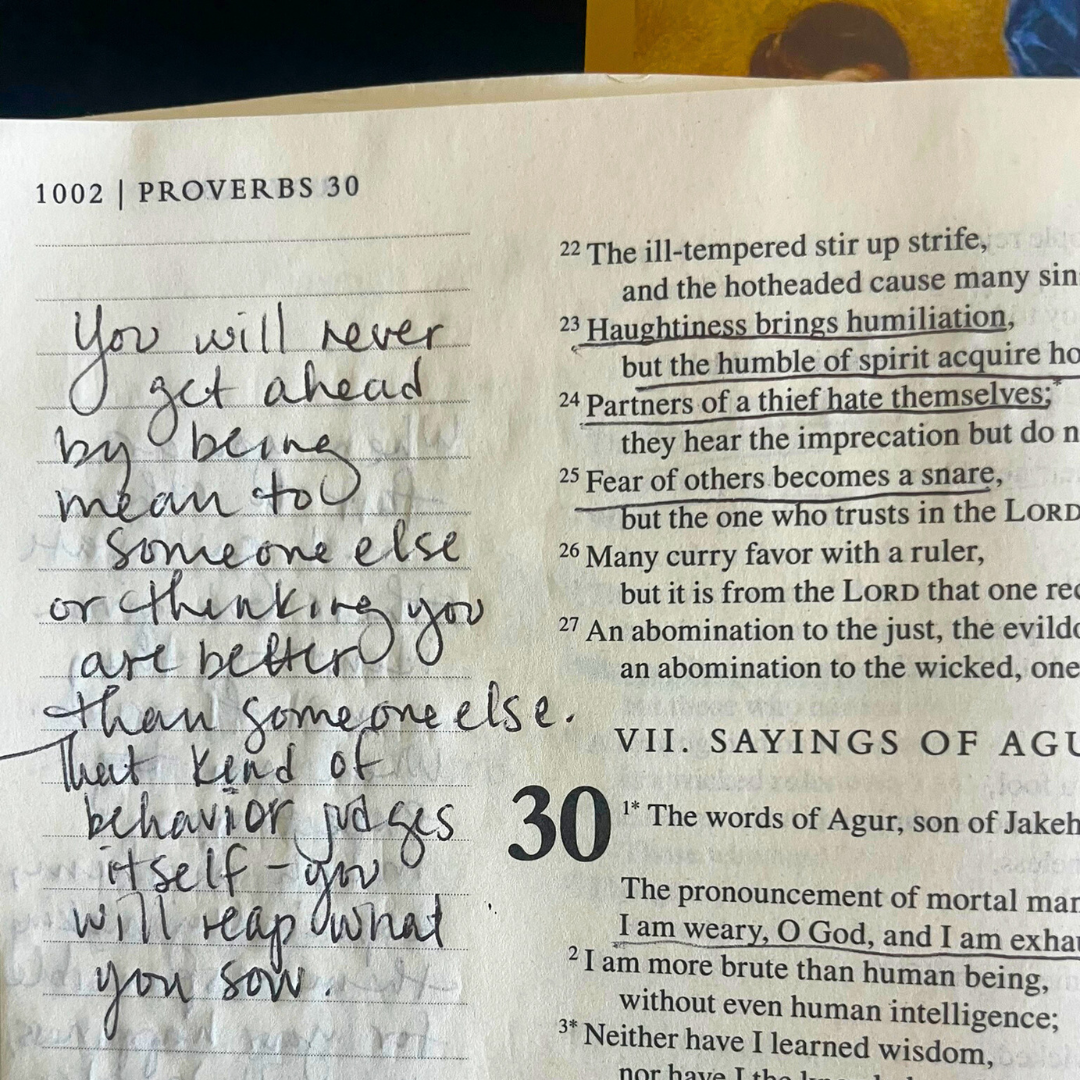 1002 | PROVERBS 30
You will never
get ahead
by being
mean to
someone else
or thinking you
are better
than someone else.
That kind of
behavior judges
itself - you
will reap what
you sow.
22 The ill-tempered stir up strife,
and the hotheaded cause many
23 Haughtiness brings humiliation,
but the humble of spirit acquire
24 Partners of a thief hate themselves;*
they hear the imprecation but do
25 Fear of others becomes a snare,
but the one who trusts in the LORD
26 Many curry favor with a ruler,
but it is from the LORD that one
27 An abomination to the just, the
an abomination to the wicked, one
VII. SAYINGS OF
30 1* The words of Agur, son of Jakeh
The pronouncement of mortal
I am weary, O God, and I am
2 I am more brute than human being,
without even human intelligence;
3* Neither have I learned wisdom,
nor have I the